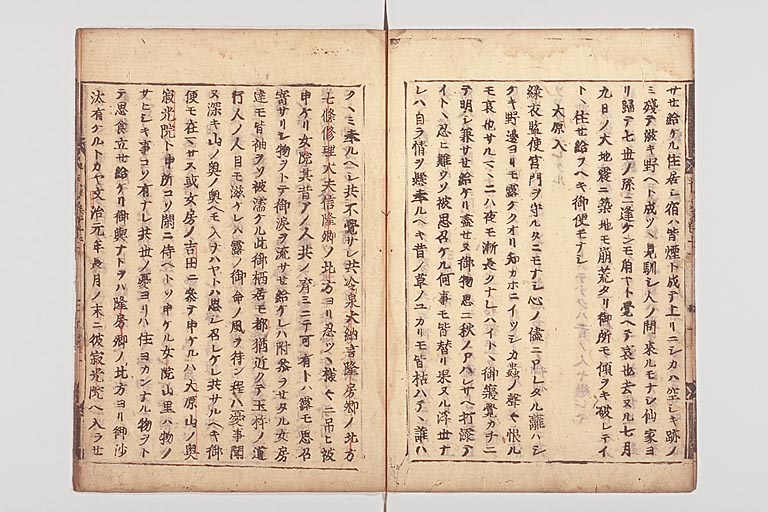 サセ給ケル住居シ宿ハ皆煙ト成テ上リニシカハ空シキ跡ノ
ミ残テ滋キ野ヘト成ツヽ見馴シ人ノ問来ルモナシ仙家ヨ
リ帰テ七世ノ孫ニ逢ケンモ角ヤト覚ヘテ哀也去ヌル七月
九日ノ大地震ニ築地モ崩荒タル御所モ傾ヲキ破レテイ
トヽ住セ給フヘキ御便モナシ
大原入
緑衣監使宮門ヲ守ルタニモナシ心ノ儘ニワレタル籬ハシ
ケキ野邊ヨリモ露ケクオリ知カホニイツシカ蟲ノ聲々恨ル
モ哀也サルマヽニハ夜モ漸長クナレハイトヽ御寝覚カチニ
テ明シ兼サセ給ケリ盡セヌ御物思ニ秋ノアハレサヘ打添テ
イトヽ忍ヒ難ウソ被思召ケル何事モ皆替リ果ヌル浮世ナ
レハ自ラ情ヲ懸奉ルヘキ昔ノ草ノユカリモ皆枯ハテヽ誰ハ
クヽミ奉ルヘシ共不覚サレ共冷泉大納言隆房卿ノ北方
七條修理大夫信隆卿ノ北方ヨリ忍ツヽ様々ニ弔ヒ被
申ケリ女院其昔アノ人共ノ育ミニテ可有トハ露モ思召
寄サリシ物ヲトテ御涙ヲ流サセ給ケレハ附参ラセタル女房
達モ皆袖ヲソ被濡ケル此御栖居モ都猶近クテ玉桙ノ道
行人ノ人目モ滋ケレハ露ノ御命ノ風ヲ待ン程ハ憂事聞
ヌ深キ山ノ奥ノ奥ヘモ入ナハヤトハ思シ召レケレ共サルヘキ御
便モ在マサス或女房ノ吉田ニ参テ申ケルハ大原山ノ奥
寂光院ト申所コソ閑ニ侍ヘトソ申ケル女院山里ハ物ノ
サヒシキ事コソ有ナレ共世ノ憂ヨリハ住ヨカンナル物ヲト
テ思食立セ給ケリ御輿ナトヲハ隆房卿ノ北方ヨリ御沙
汰有ケルトカヤ文治元年長月ノ末ニ彼寂光院ヘ入ラセ